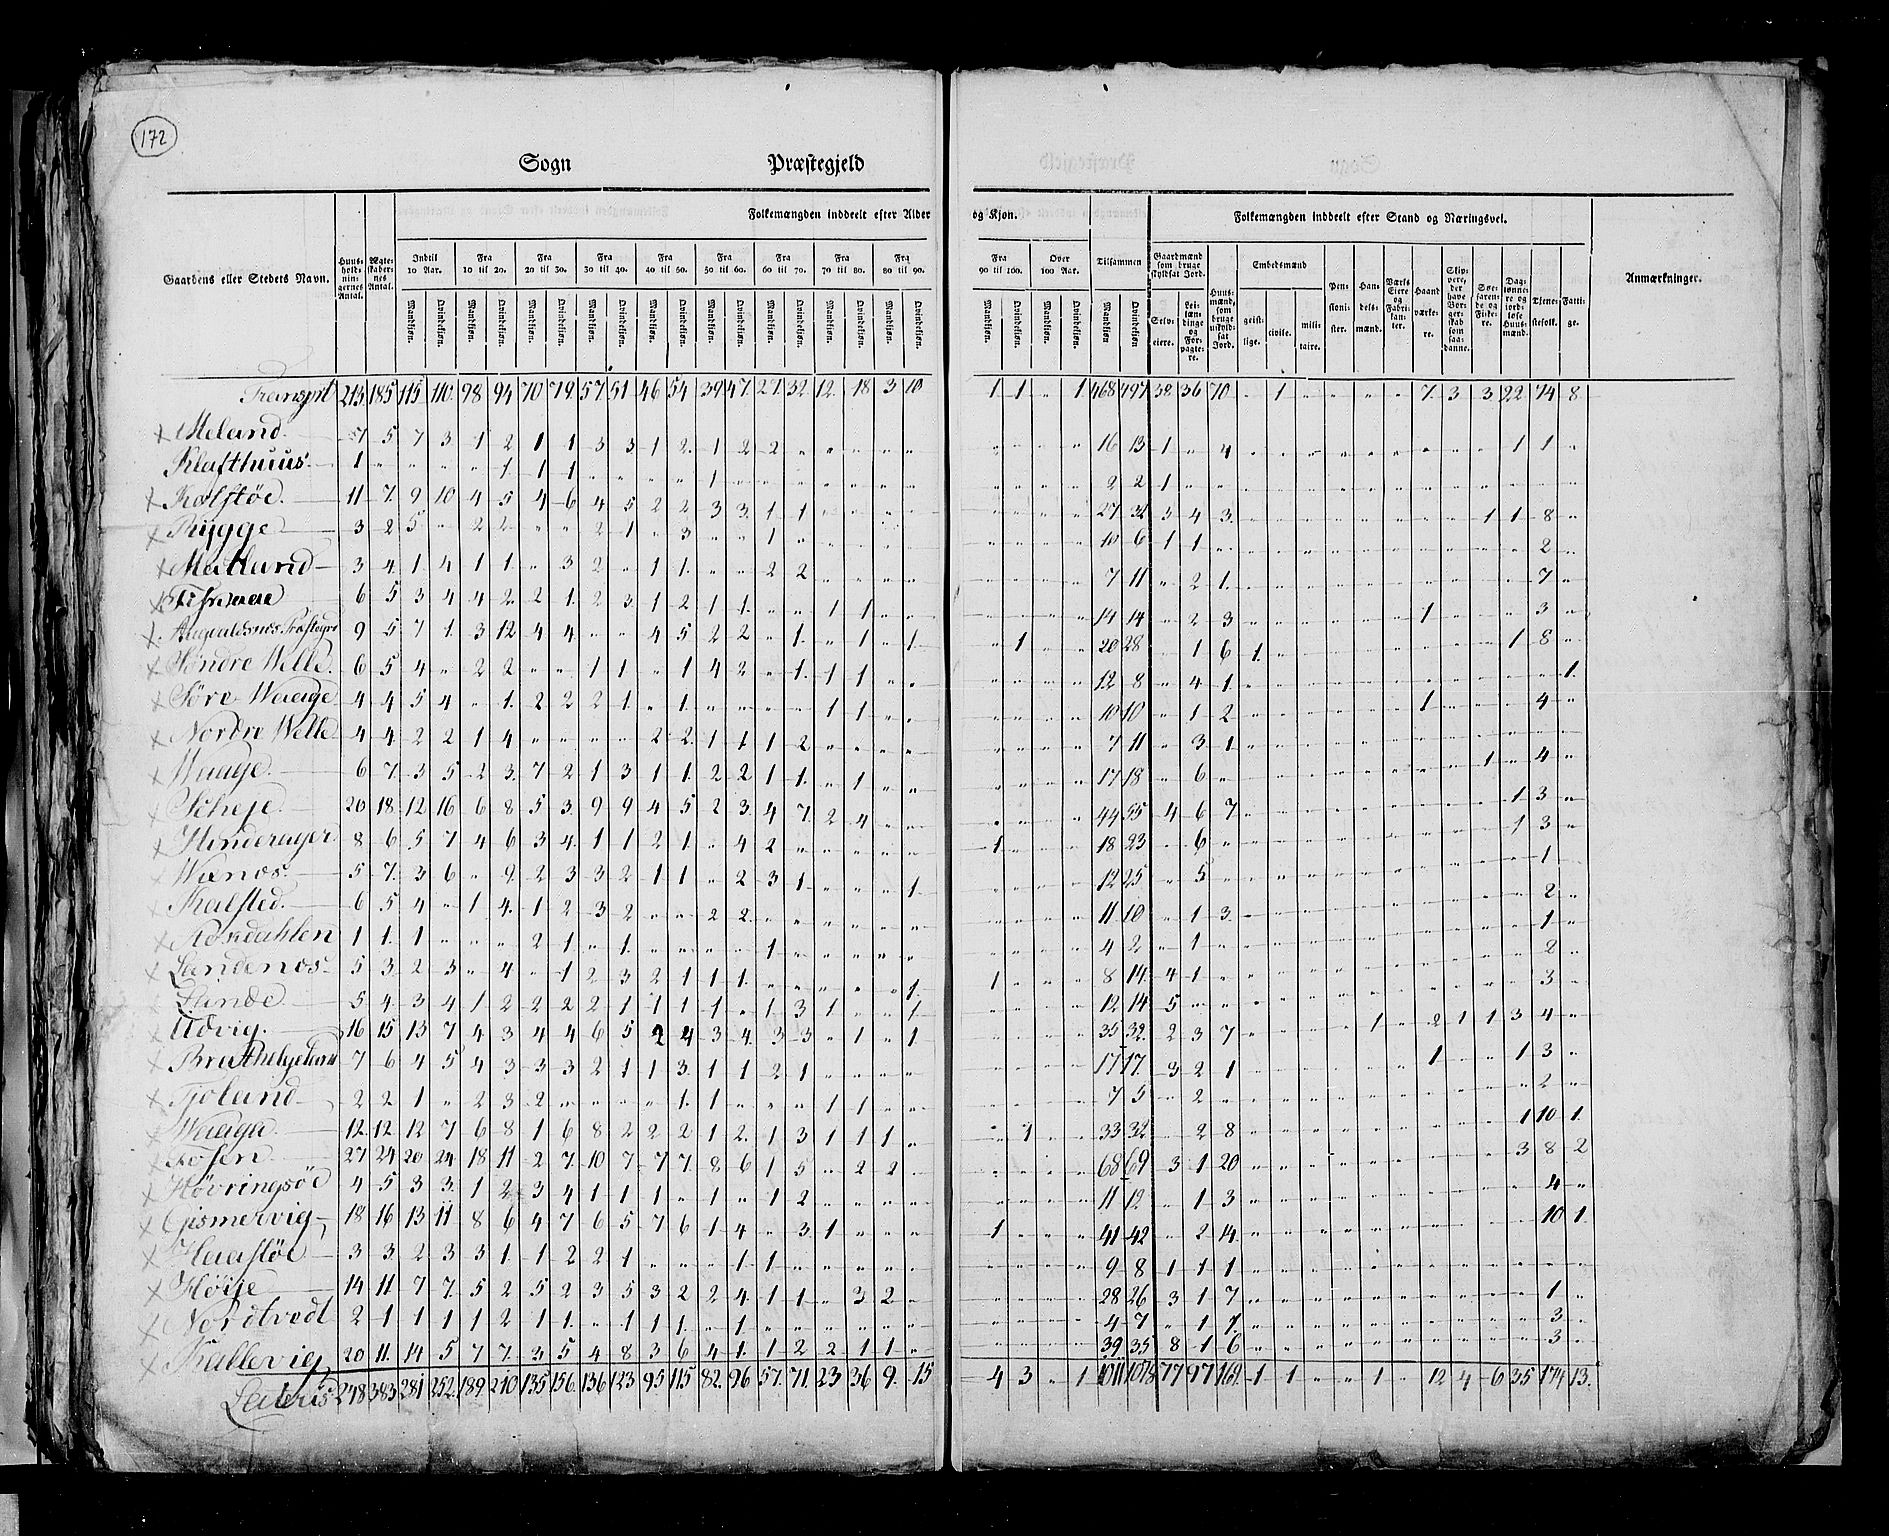 172
Sogn Præstegjeld
Folkemængden inddeelt efter Alder og Kjøn. Folkemængden inddeelt efter Stand og Næringsvei.
Gaardens eller Stedets Navn. Huusholdningernes Antal. Ægteskabernes Antal. Indtil 10 Aar. Fra 10 til 20. Fra 20 til 30. Fra 30 til 40. Fra 40 til 50. Fra 50 til 60. Fra 60 til 70. Fra 70 til 80. Fra 80 til 90. Fra 90 til 100. Over 100 Aar. Tilsammen Gaardmænd som bruge skyldsat Jord. Huusmænd, som bruge uskyldsat Jord. Embedsmænd Pensionister. Handelsmænd. Værks Eiere og Fabrikanter. Haandværkere. Skippere, der have Borgerskab som saadanne. Søefarende og Fiskere. Daglønnere og jordløse Huusmænd. Tjenestefolk. Fattige. Anmærkninger.
Mandkjøn. Qvindekjøn. Mandkjøn. Qvindekjøn. Mandkjøn. Qvindekjøn. Mandkjøn. Qvindekjøn. Mandkjøn. Qvindekjøn. Mandkjøn. Qvindekjøn. Mandkjøn. Qvindekjøn. Mandkjøn. Qvindekjøn. Mandkjøn. Qvindekjøn. Mandkjøn. Qvindekjøn. Mandkjøn. Qvindekjøn. Mandkjøn Qvindekjøn. Selveiere. Leilændinge og Forpagtere. geistlige. civile. militaire.
Transprt 213 185 115 110 98 94 70 79 57 51 46 54 39 47 27 32 12 18 3 10 1 1 " 1 468 497 38 36 70 " 1 " " " " 7 3 3 22 74 8
Meland 7 5 7 3 1 2 1 1 3 3 1 2 1 2 2 " " " " " " " " " 16 13 1 " 4 " " " " " " " " " 1 1 "
Klafthuus 1 " " " " 1 1 1 " " " " 1 " " " " " " " " " " " 2 2 1
Kolstøe 11 7 9 10 4 5 4 6 4 5 2 2 3 3 1 1 " " " " " " " " 27 32 3 4 3 " " " " " " " " 1 1 8 "
Rygge 3 2 5 " 2 2 " " 2 1 " 3 " " 1 " " " " " " " " " 10 6 1 1 " " " " " " " " " " " 2 "
Matland 3 4 1 4 1 1 " 3 2 " 1 1 " " 2 2 " " " " " " " " 7 11 " 2 1 " " " " " " " " " " 7 "
6 5 3 4 4 2 2 1 2 3 1 2 1 1 " " 1 1 " " " " " " 14 14 " 2 3 " " " " " " 1 " " " 3 "
9 5 7 1 3 12 4 4 " " 4 5 2 2 " 1 " 1 " 1 " 1 " " 20 28 " 1 6 1 " " " " " " " " 1 8 "
Søndre Welle 6 5 4 " 2 2 " " 1 1 " 1 4 2 " 1 1 1 " " " " " " 12 8 " 4 1 " " " " " " " " " " " 1
Søre Waage 4 4 5 4 " 1 2 2 2 1 " 1 " " " " 1 1 " " " " " " 10 10 " 1 2 " " " " " " 1 " " " 4 "
Nordre Welle 4 4 2 2 1 4 " " " " 2 2 1 1 1 2 " " " " " " " " 7 11 " 3 1
Waage 6 7 3 5 2 3 7 2 1 3 1 1 2 2 1 1 " 1 " " " " " " 17 18 " 6 " " " " " " " " " 1 " 4 "
Scheje 20 18 12 16 6 8 5 3 9 9 4 5 2 3 4 7 2 4 " " " " " " 44 55 4 6 7 " " " " " " " " " 1 3 "
Hinderager 8 6 5 7 4 6 3 4 1 1 2 1 " 4 2 " " " " " 1 " " " 18 23 " 6 " " " " " " " " " " 1 3 "
Wænes 5 7 3 6 " 9 2 3 3 2 1 1 " 2 3 1 " " " 1 " " " " 12 25 " 5 " " " " " " " " " " " 1 "
Kalsted 6 5 4 " 1 4 1 2 3 2 " " 2 2 " " " " " " " " " " 11 10 " 1 3 " " " " " " " " " " 2 "
1 1 1 " " " 2 1 " 1 " " " " 1 " " " " " " " " " 4 2 " 1 " " " " " " " " " " " 1 "
Sandenes 5 3 2 3 " 4 " 1 2 3 2 1 1 1 " " " " " 1 1 " " " 8 14 4 1 " " " " " " " " " " " 2 "
Linde 5 4 3 4 1 2 2 2 2 1 1 1 1 " 1 3 1 " " 1 " " " " 12 14 5 " " " " " " " " " " " " 3 "
Udvig 16 15 13 7 4 3 4 4 6 5 2 4 3 4 3 3 " 1 " 1 " " " " 35 32 2 3 7 " " " " 1 " 2 1 1 3 4 "
7 6 4 5 4 3 3 3 2 1 1 3 1 1 2 1 " " " " " " " " 17 17 3 2 1 " " " " " " 1 " " 1 3 "
Tjoland 2 2 1 " 2 3 2 " " " " 1 1 " " " 1 1 " " " " " " 7 5 " 2 " " " " " " " " " " " 2 "
Waaga 12 12 12 7 6 8 1 6 8 2 2 2 1 2 1 3 1 1 1 " " 1 " " 33 32 " 2 8 " " " " " " " " " 1 10 1
Fosen 27 24 20 24 18 11 2 7 10 7 7 7 8 6 1 5 " 2 2 " " " " " 68 69 3 1 20 " " " " " " " " " 3 8 2
Høvringsøe 4 5 3 3 1 2 3 4 1 1 1 " 1 " 1 2 " " " " " " " " 11 12 " 1 3 " " " " " " " " " " 4 "
Gismervig 18 16 13 11 8 6 4 7 6 5 7 6 1 4 " 3 1 " " " 1 " " " 41 42 " 2 14 " " " " " " " " " " 10 1
Haastøe 3 3 2 3 3 1 1 2 2 1 " " " 1 1 " " " " " " " " " 9 8 1 1 1
Høije 14 11 7 7 5 2 5 2 3 5 3 2 2 4 1 1 " 3 2 " " " " " 28 26 3 1 7 " " " " " " " " " " 1 "
Nordtvedt 2 1 1 1 1 2 1 1 " 1 1 1 " 1 " " " " " " " " " " 4 7 " 1 1 " " " " " " " " " " 3 "
Kallevig 20 11 14 5 7 7 3 5 4 8 3 6 4 1 1 2 2 1 1 " " " " " 39 35 8 1 6 " " " " " " " " " " 3 "
Lateris 248 383 281 252 189 210 135 156 136 123 95 115 82 96 57 71 23 36 9 15 4 3 " 1 1011 1078 77 97 169 1 1 " " 1 " 12 4 6 35 174 13